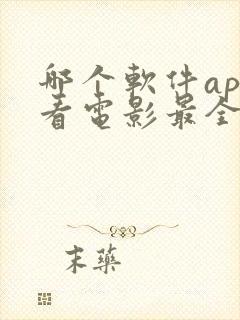 哪个軟件ap
看電影最全
末藥